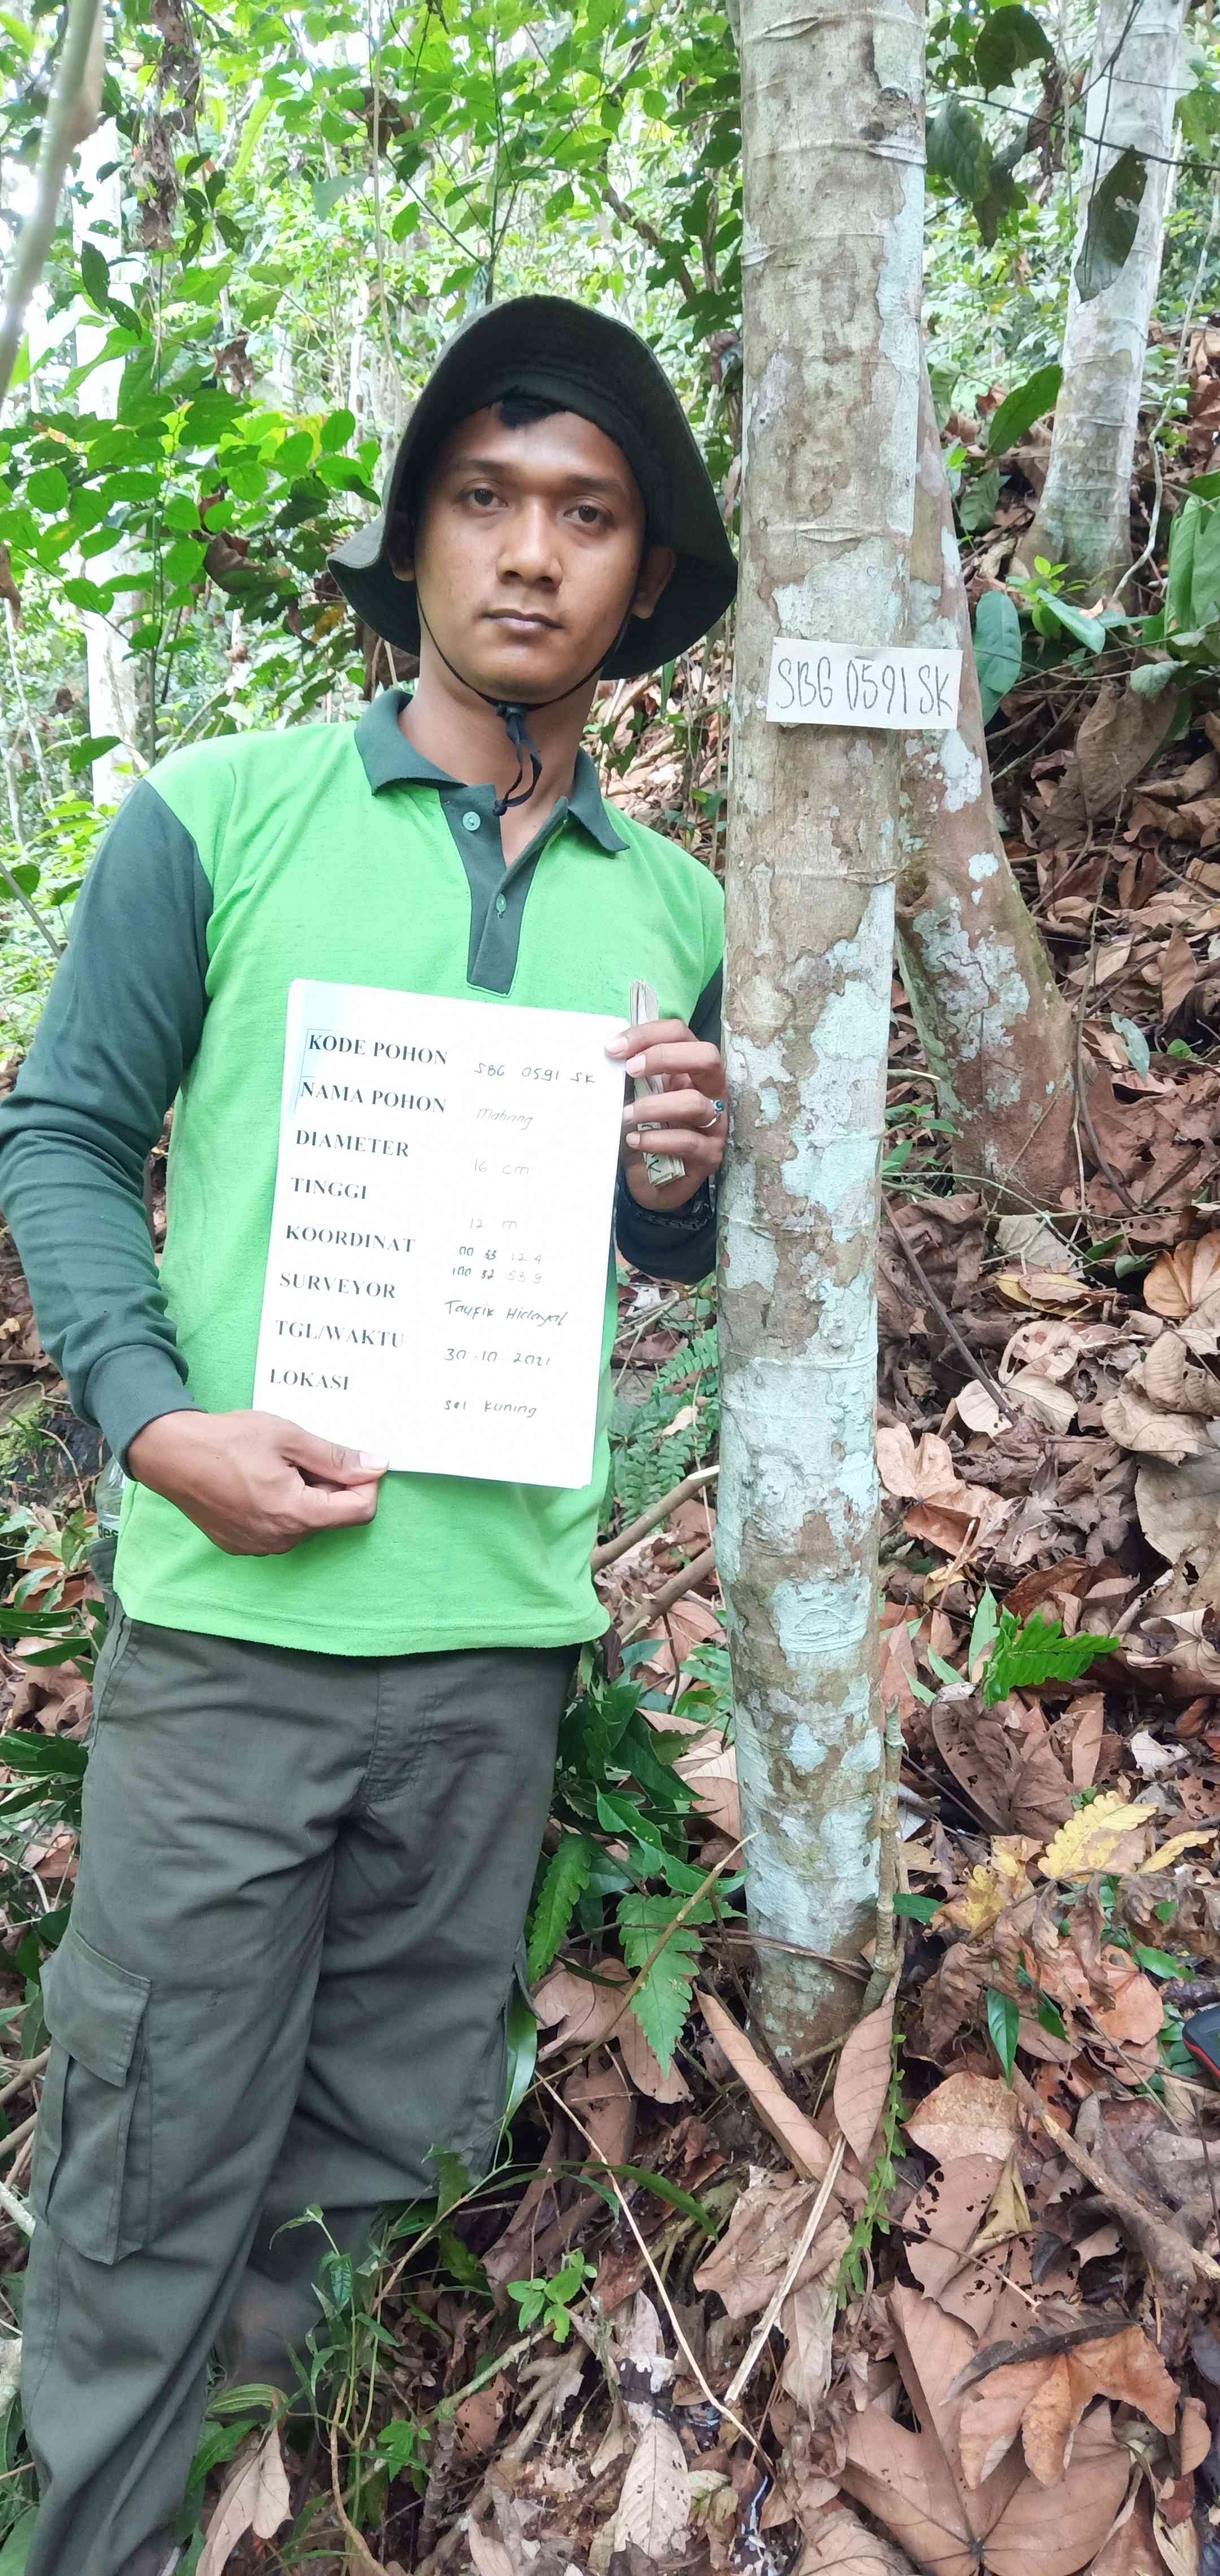 SBG 0591 SK
KODE POHON SBG 0591 SK
NAMA POHON mahang
DIAMETER 16 cm
TINGGI 12 m
KOORDINAT 00 33 12.4
100 32 53.9
SURVEYOR Taufik Hidayat
TGL/WAKTU 30.10.2021
LOKASI sei kuning